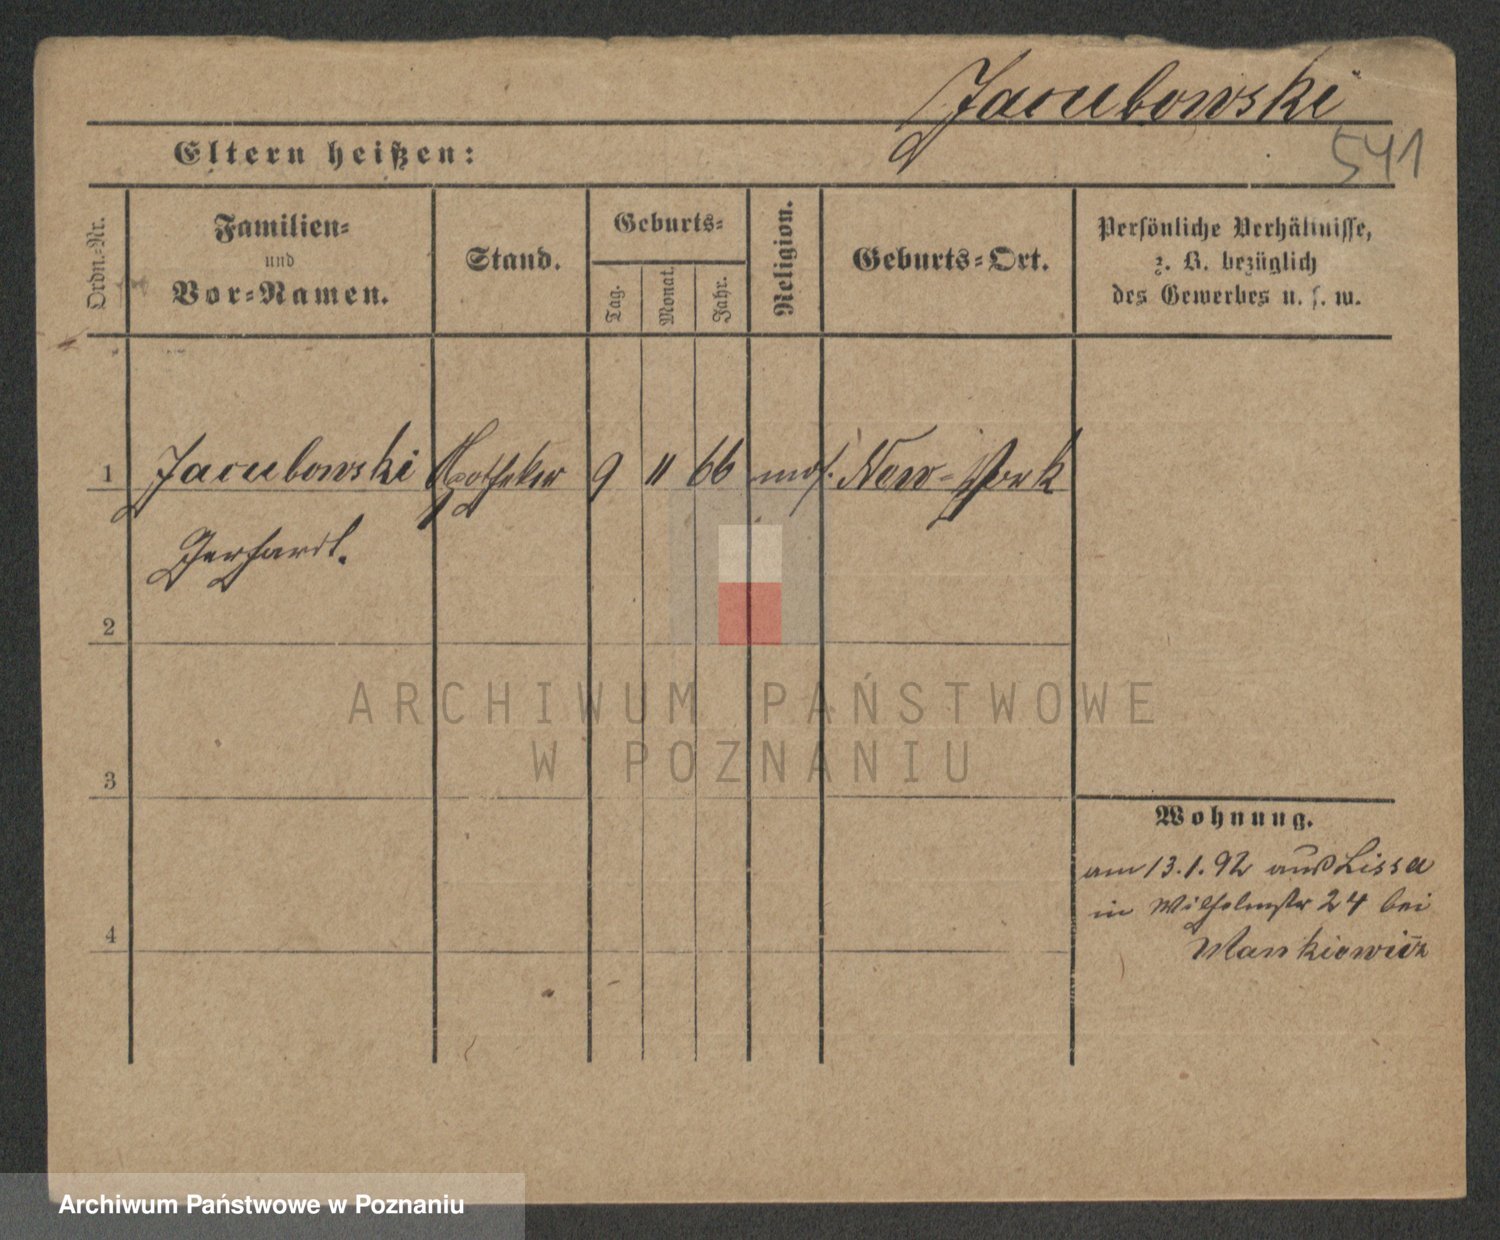 Jacubowski
541
Eltern heißen:
Ordn.-Nr.
Familien-
und
Vor-Namen.
Stand.
Geburts-
Tag.
Monat.
Jahr.
Religion.
Geburts-Ort.
Persönliche Verhältnisse,
z. B. bezüglich
des Gewerbes u. s. w.
1 Jacubowski Apotheker 9 11 66 mos. New-York
Gerhardt.
2
3
4
Wohnung.
am 13.1.92 aus Lissa
in Wilhelmstr 24 bei
Mankiewicz
ARCHIWUM PAŃSTWOWE
W POZNANIU
Archiwum Państwowe w Poznaniu